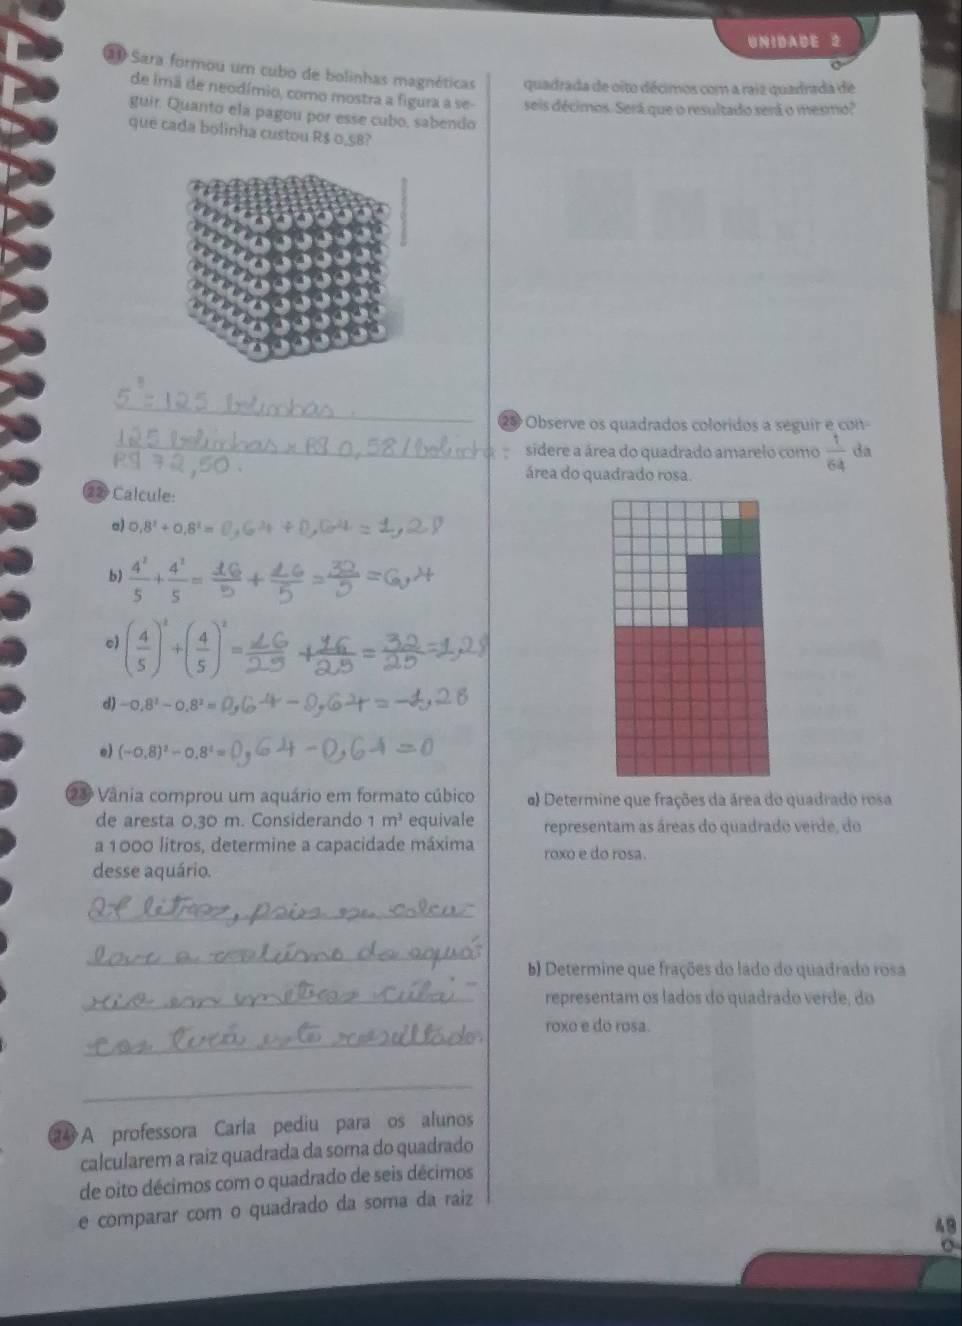 UNIDADE 2
21 Sara formou um cubo de bolinhas magnéticas
de ímã de neodímio, como mostra a figura a se-
guir. Quanto ela pagou por esse cubo, sabendo
que cada bolinha custou R$ 0,58?
5³ = 125 bolinhas.
125 bolinhas x R$ 0,58 / bolinha =
R$ 72,50.
22 Calcule:
a) 0,8² + 0,8² = 0,64 + 0,64 = 1,28
b) 4²/5 + 4²/5 = 16/5 + 16/5 = 32/5 = 6,4
c) (4/5)² + (4/5)² = 16/25 + 16/25 = 32/25 = 1,28
d) -0,8² - 0,8² = 0,64 - 0,64 = -1,28
e) (-0,8)² - 0,8² = 0,64 - 0,64 = 0
23 Vânia comprou um aquário em formato cúbico
de aresta 0,30 m. Considerando 1 m³ equivale
a 1 000 litros, determine a capacidade máxima
desse aquário.
litros, pois se calcu-
do aquá-
rio em metros cúbi-
cos este resultado.
24 A professora Carla pediu para os alunos
calcularem a raiz quadrada da soma do quadrado
de oito décimos com o quadrado de seis décimos
e comparar com o quadrado da soma da raiz
quadrada de oito décimos com a raiz quadrada de
seis décimos. Será que o resultado será o mesmo?
25 Observe os quadrados coloridos a seguir e con-
sidere a área do quadrado amarelo como 1/64 da
área do quadrado rosa.
a) Determine que frações da área do quadrado rosa
representam as áreas do quadrado verde, do
roxo e do rosa.
b) Determine que frações do lado do quadrado rosa
representam os lados do quadrado verde, do
roxo e do rosa.
49